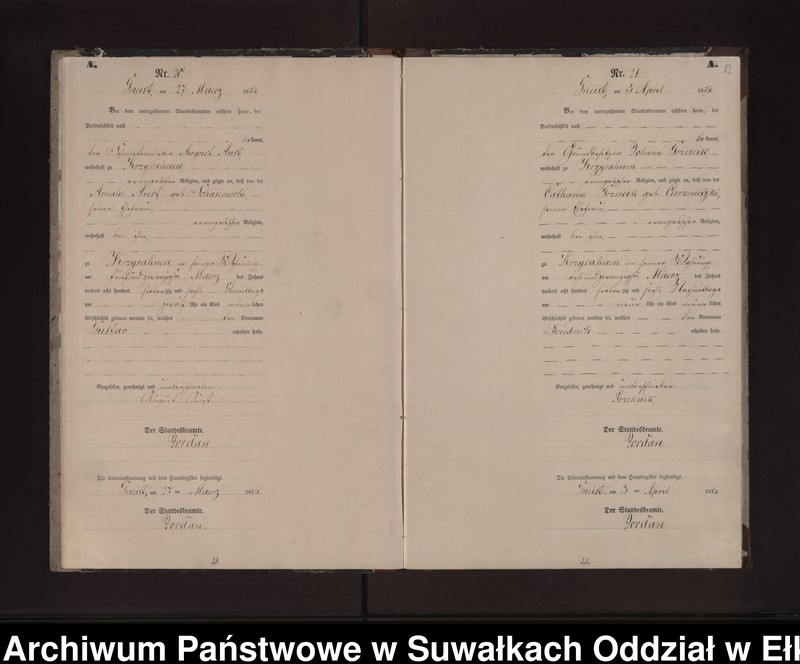 A.
Nr. 20.
Gneist, am 27. Maerz 1876.
Vor dem unterzeichneten Standesbeamten erschien heute, der
Persönlichkeit nach
bekannt,
der August Aust
wohnhaft zu Krzysahnen
evangelischer Religion, und zeigte an, daß von der
Amalie Aust geb.
seiner Ehefrau,
evangelischer Religion,
wohnhaft bei ihm,
zu Krzysahnen in seiner Wohnung
am fünfundzwanzigsten Maerz des Jahres
tausend acht hundert siebenzig und sechs Vormittags
um zwölf Uhr ein Kind männlichen
Geschlechts geboren worden sei, welches den Vornamen
Gustav
erhalten habe.
Vorgelesen, genehmigt und unterschrieben.
August Aust.
Der Standesbeamte.
Jordan.
Die Uebereinstimmung mit dem Hauptregister beglaubigt.
Gneist, am 27ten Maerz 1876.
Der Standesbeamte.
Jordan.
21
A.
12
Nr. 21.
Gneist, am 3 April 1876.
Vor dem unterzeichneten Standesbeamten erschien heute, der
Persönlichkeit nach
bekannt,
der Grundbesitzer Johann
wohnhaft zu Krzysahnen
evangelischer Religion, und zeigte an, daß von der
Catharine geb.
seiner Ehefrau,
evangelischer Religion,
wohnhaft bei ihm,
zu Krzysahnen in seiner Wohnung
am Maerz des Jahres
tausend acht hundert siebenzig und sechs Nachmittags
um neun Uhr ein Kind männlichen
Geschlechts geboren worden sei, welches den Vornamen
Friedrich
erhalten habe.
Vorgelesen, genehmigt und unterschrieben.
Der Standesbeamte.
Jordan.
Die Uebereinstimmung mit dem Hauptregister beglaubigt.
Gneist, am 3ten April 1876.
Der Standesbeamte.
Jordan.
22
Archiwum Państwowe w Suwałkach Oddział w Ełk